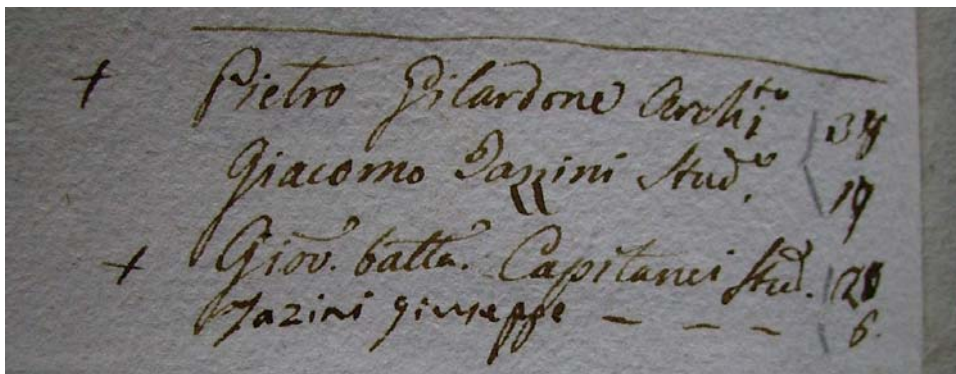 + Pietro Gilardone Archi.to
Giacomo Stud.o
+ Giov. batta. Capitanei Stud. 20
Jazini Giuseppe - - - 6.